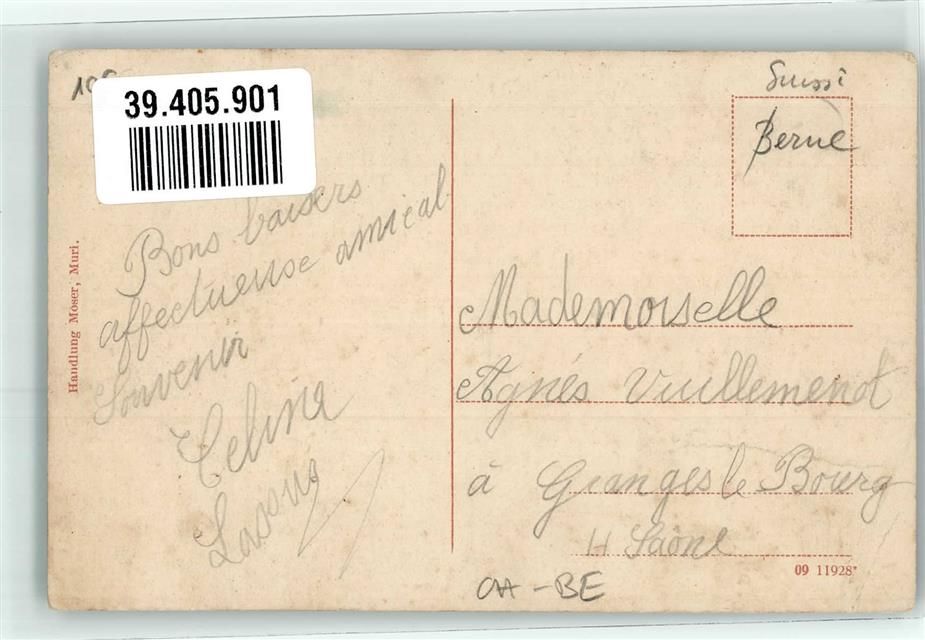 39.405.901
Bons baisers
affectueuse amical
Souvenir
Celina
Handlung Moser, Muri.
Suissi
Berne
Mademoiselle
Agnés Vuillemenot
à Granges le Bourg
H Saône
09 11928*
CH - BE